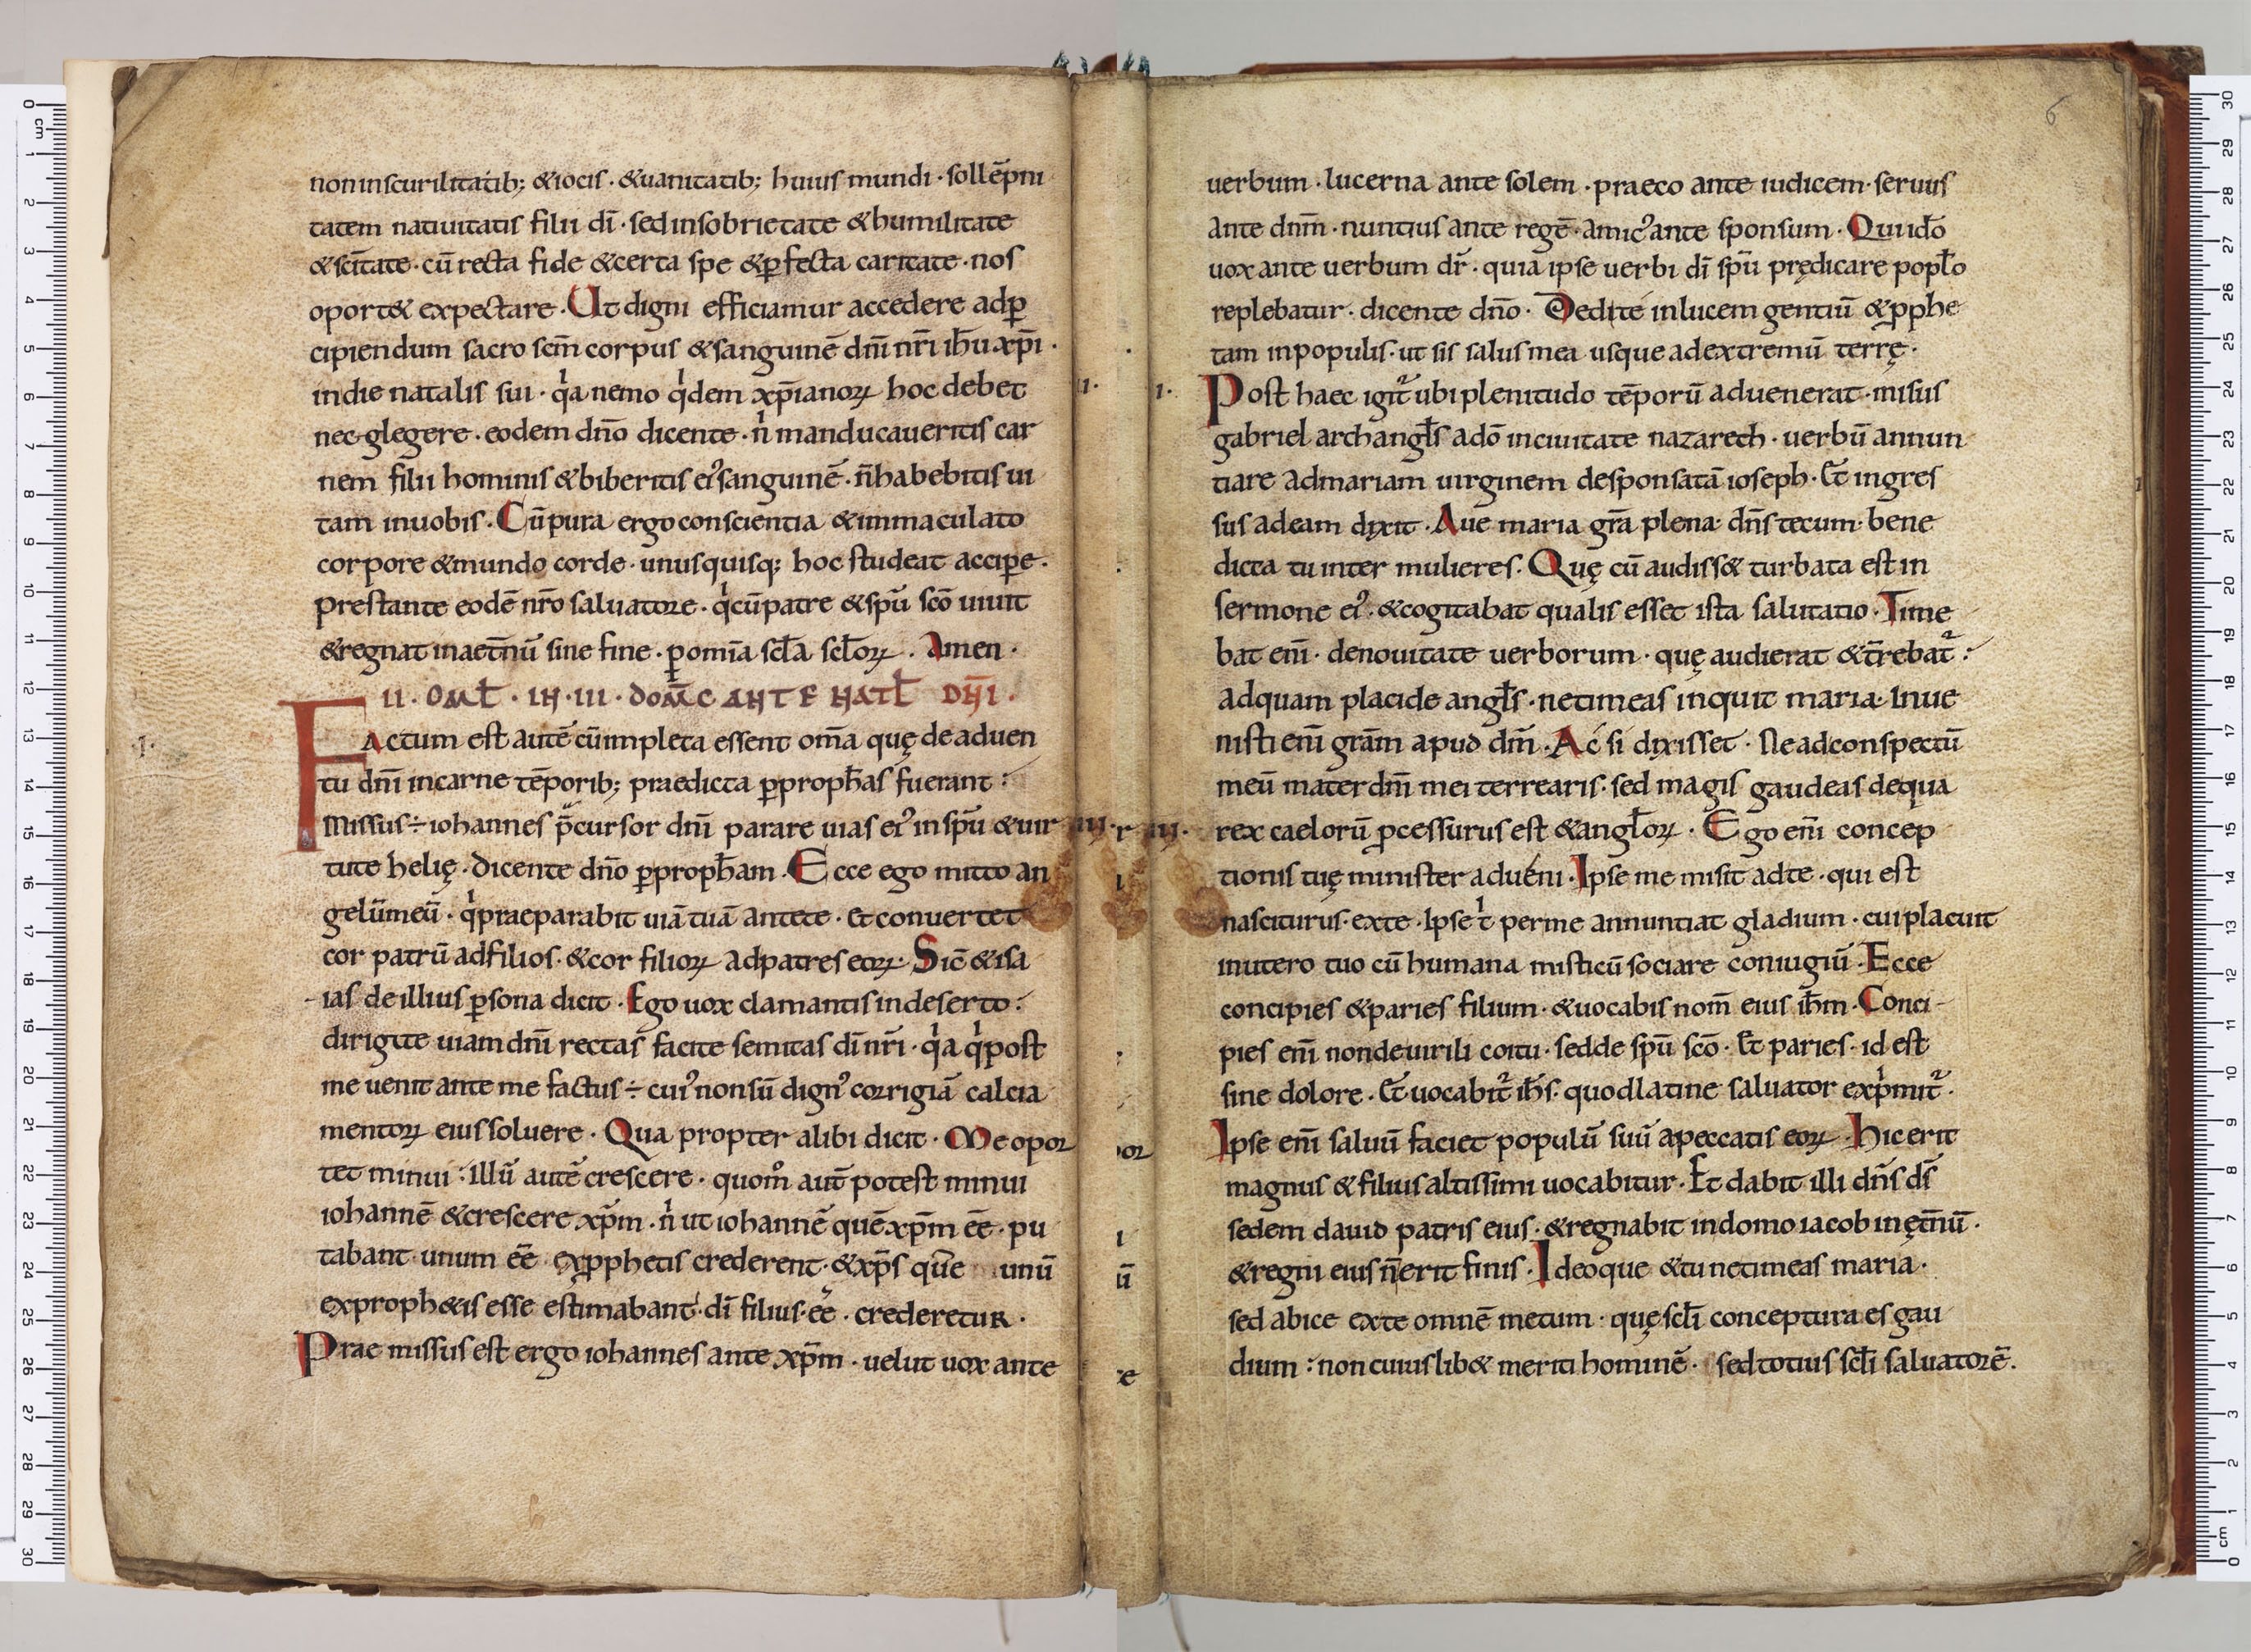 non in scurilitatib; & iocis · & uanitatib; huius mundi · sollēpni
tatem natiuitatis filii dī · sed in sobrietate & humilitate
& scītate · cū recta fide & certa spe & ꝑfecta caritate · nos
oport& expectare · Ut digni efficiamur accedere ad ꝑ
cipiendum sacro scm̄ corpus & sanguinē dnī nrī ihū xp̄i ·
in die natalis sui · qͥa nemo qͥdem xp̄ianoꝝ hoc debet
necglegere · eodem dnō dicente · nͥ manducaueritis car
nem filii hominis & biberitis eiꝰ sanguinē · n̄ habebitis ui
tam in uobis · Cū pura ergo conscientia & immaculato
corpore & mundo corde · unusquisq; hoc studeat acciꝑe ·
prestante eodē nrō saluatore · qͥ cū patre & spū scō uiuit
& regnat in aet̄nū sine fine · ꝑ omīa scl̄a scl̄oꝝ · Amen ·
II · OML̄ · IN · III · DOM̄C ANTE NATL̄ DN̄I ·
Factum est autē cū impleta essent om̄a quę de aduen
tu dnī in carne tēporib; praedicta ꝑ proph̄as fuerant :
Missus ÷ iohannes p̄cursor dnī parare uias eiꝰ in spū & uir
tute helię · dicente dnō ꝑ proph̄am · Ecce ego mitto an
gelū meū · qͥ praeparabit uiā tuā ante te · Et conuertet
cor patrū ad filios · & cor filioꝝ ad patres eoꝝ · Sic̄ & isa
ias de illius ꝑsona dicit · Ego uox clamantis in deserto :
dirigite uiam dnī rectas facite semitas dī nrī · qͥa qͥ post
me uenit ante me factus ÷ cuiꝰ non sū dignꝰ corrigiā calcia
mentoꝝ eius soluere · Qua propter alibi dicit · Me opor
tet minui : illū autē crescere · quom̊ aut̄ potest minui
iohannē & crescere xp̄m · nͥ ut iohannē quē xp̄m eē · pu
tabant · unum eē ex ꝓphetis crederent · & xp̄s quē unū
ex proph&is esse estimabant · dī filius · eē · crederetur ·
Prae missus est ergo iohannes ante xp̄m · uelut uox ante
6
uerbum · lucerna ante solem · praeco ante iudicem · seruus
ante dnm̄ · nuntius ante regē · amicꝰ ante sponsum · Qui ido
uox ante uerbum dr̄ · quia ipse uerbi dī spū prędicare popl̄o
replebatur · dicente dnō · Dedi te in lucem gentiū & ꝓphe
tam in populis · ut sis salus mea usque ad extremū terrę ·
1 ·
Post haec igit᷑ ubi plenitudo tēporū aduenerat · misus
gabriel archangl̄s a dō in ciuitate nazareth · uerbū annun
tiare ad mariam uirginem desponsatā ioseph · Et ingres
sus ad eam dixit · Aue maria grā plena · dn̄s tecum · bene
dicta tu inter mulieres · Quę cū audiss& turbata est in
sermone eiꝰ · & cogitabat qualis esset ista salutatio · Time
bat enī · de nouitate uerborum · quę audierat & t̄rebat᷑ :
ad quam placide angl̄s · ne timeas inquit maria · Inue
nisti enī grām apud dm̄ · Ac si dixisset · Ne ad conspectū
meū mater dnī mei terrearis · sed magis gaudeas de qua
III ·
rex caelorū ꝓcessurus est & angl̄oꝝ · Ego enī concep
tionis tuę minister adueni · Ipse me misit ad te · qui est
nasciturus · ex te · Ipse tͥ per me annuntiat gladium · cui placuit
in utero tuo cū humana misticū sociare coniugiū · Ecce
concipies & paries filium · & uocabis nom̄ eius ih̄m · Conci-
pies enī non de uirili coitu · sed de spū scō · Et paries · id est
sine dolore · Et uocabit᷑ ih̄s · quod latine saluator expͥmit᷑ ·
Ipse enī saluū faciet populū suū a peccatis eoꝝ · Hic erit
magnus & filius altissimi uocabitur · Et dabit illi dn̄s dī
sedem dauid patris eius · & regnabit in domo iacob in ęt̄nū ·
& regni eius n̄ erit finis · Ideoque & tu ne timeas maria ·
sed abice ex te omnē metum · quę scl̄i conceptura es gau
dium : non cuiuslib& meriti hominē · sed totius scl̄i saluatorē ·